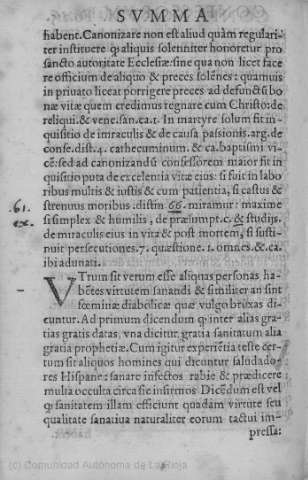 SVMMA
habent. Canonizare non est aliud quàm regulari-
ter instituere ꝙ aliquis solenniter honoretur pro
sancto autoritate Ecclesiæ: sine qua non licet face
re officium de aliquo & preces solẽnes: quamuis
in priuato liceat porrigere preces ad defunctũ bo
næ vitæ quem credimus regnare cum Christo: de
reliqui. & vene. san. ca. 1. In martyre solum fit in-
quisitio de miraculis & de causa passionis. arg. de
conse. dist. 4. cathecuminum. & ca. baptismi vi-
cẽ: sed ad canonizandũ confessorem maior fit in
quisitio puta de excelentia vitæ eius: si fuit in labo
ribus multis & iustis & cum patientia, si castus &
strenuus moribus. distin 66. miramur: maxime
61.
si simplex & humilis, de præsumpt. c. & studijs.
ex.
de miraculis eius in vita & post mortem, si susti-
nuit persecutiones. 7. quæstione. 1. omnes & ca.
ibi adunati.
VTrum sit verum esse aliquas personas ha-
bẽtes virtutem sanandi & similiter an sint
fœminiæ diabolicæ quæ vulgo bruxas di-
cuntur. Ad primum dicendum ꝙ inter alias gra-
tias gratis datas, vna dicitur gratia sanitatum alia
gratia prophetiæ. Cum igitur experiẽtia teste cer-
tum sit aliquos homines qui dicuntur saludado-
res Hispane: sanare infectos rabie & prædicere
multa occulta circa esse infirmos Dicẽdum est vel
ꝙ sanitatem illam efficiunt quadam virtute seu
qualitate sanatiua naturaliter eorum tactui im-
pressa:
(c) Comunidad Autónoma de La Rioja